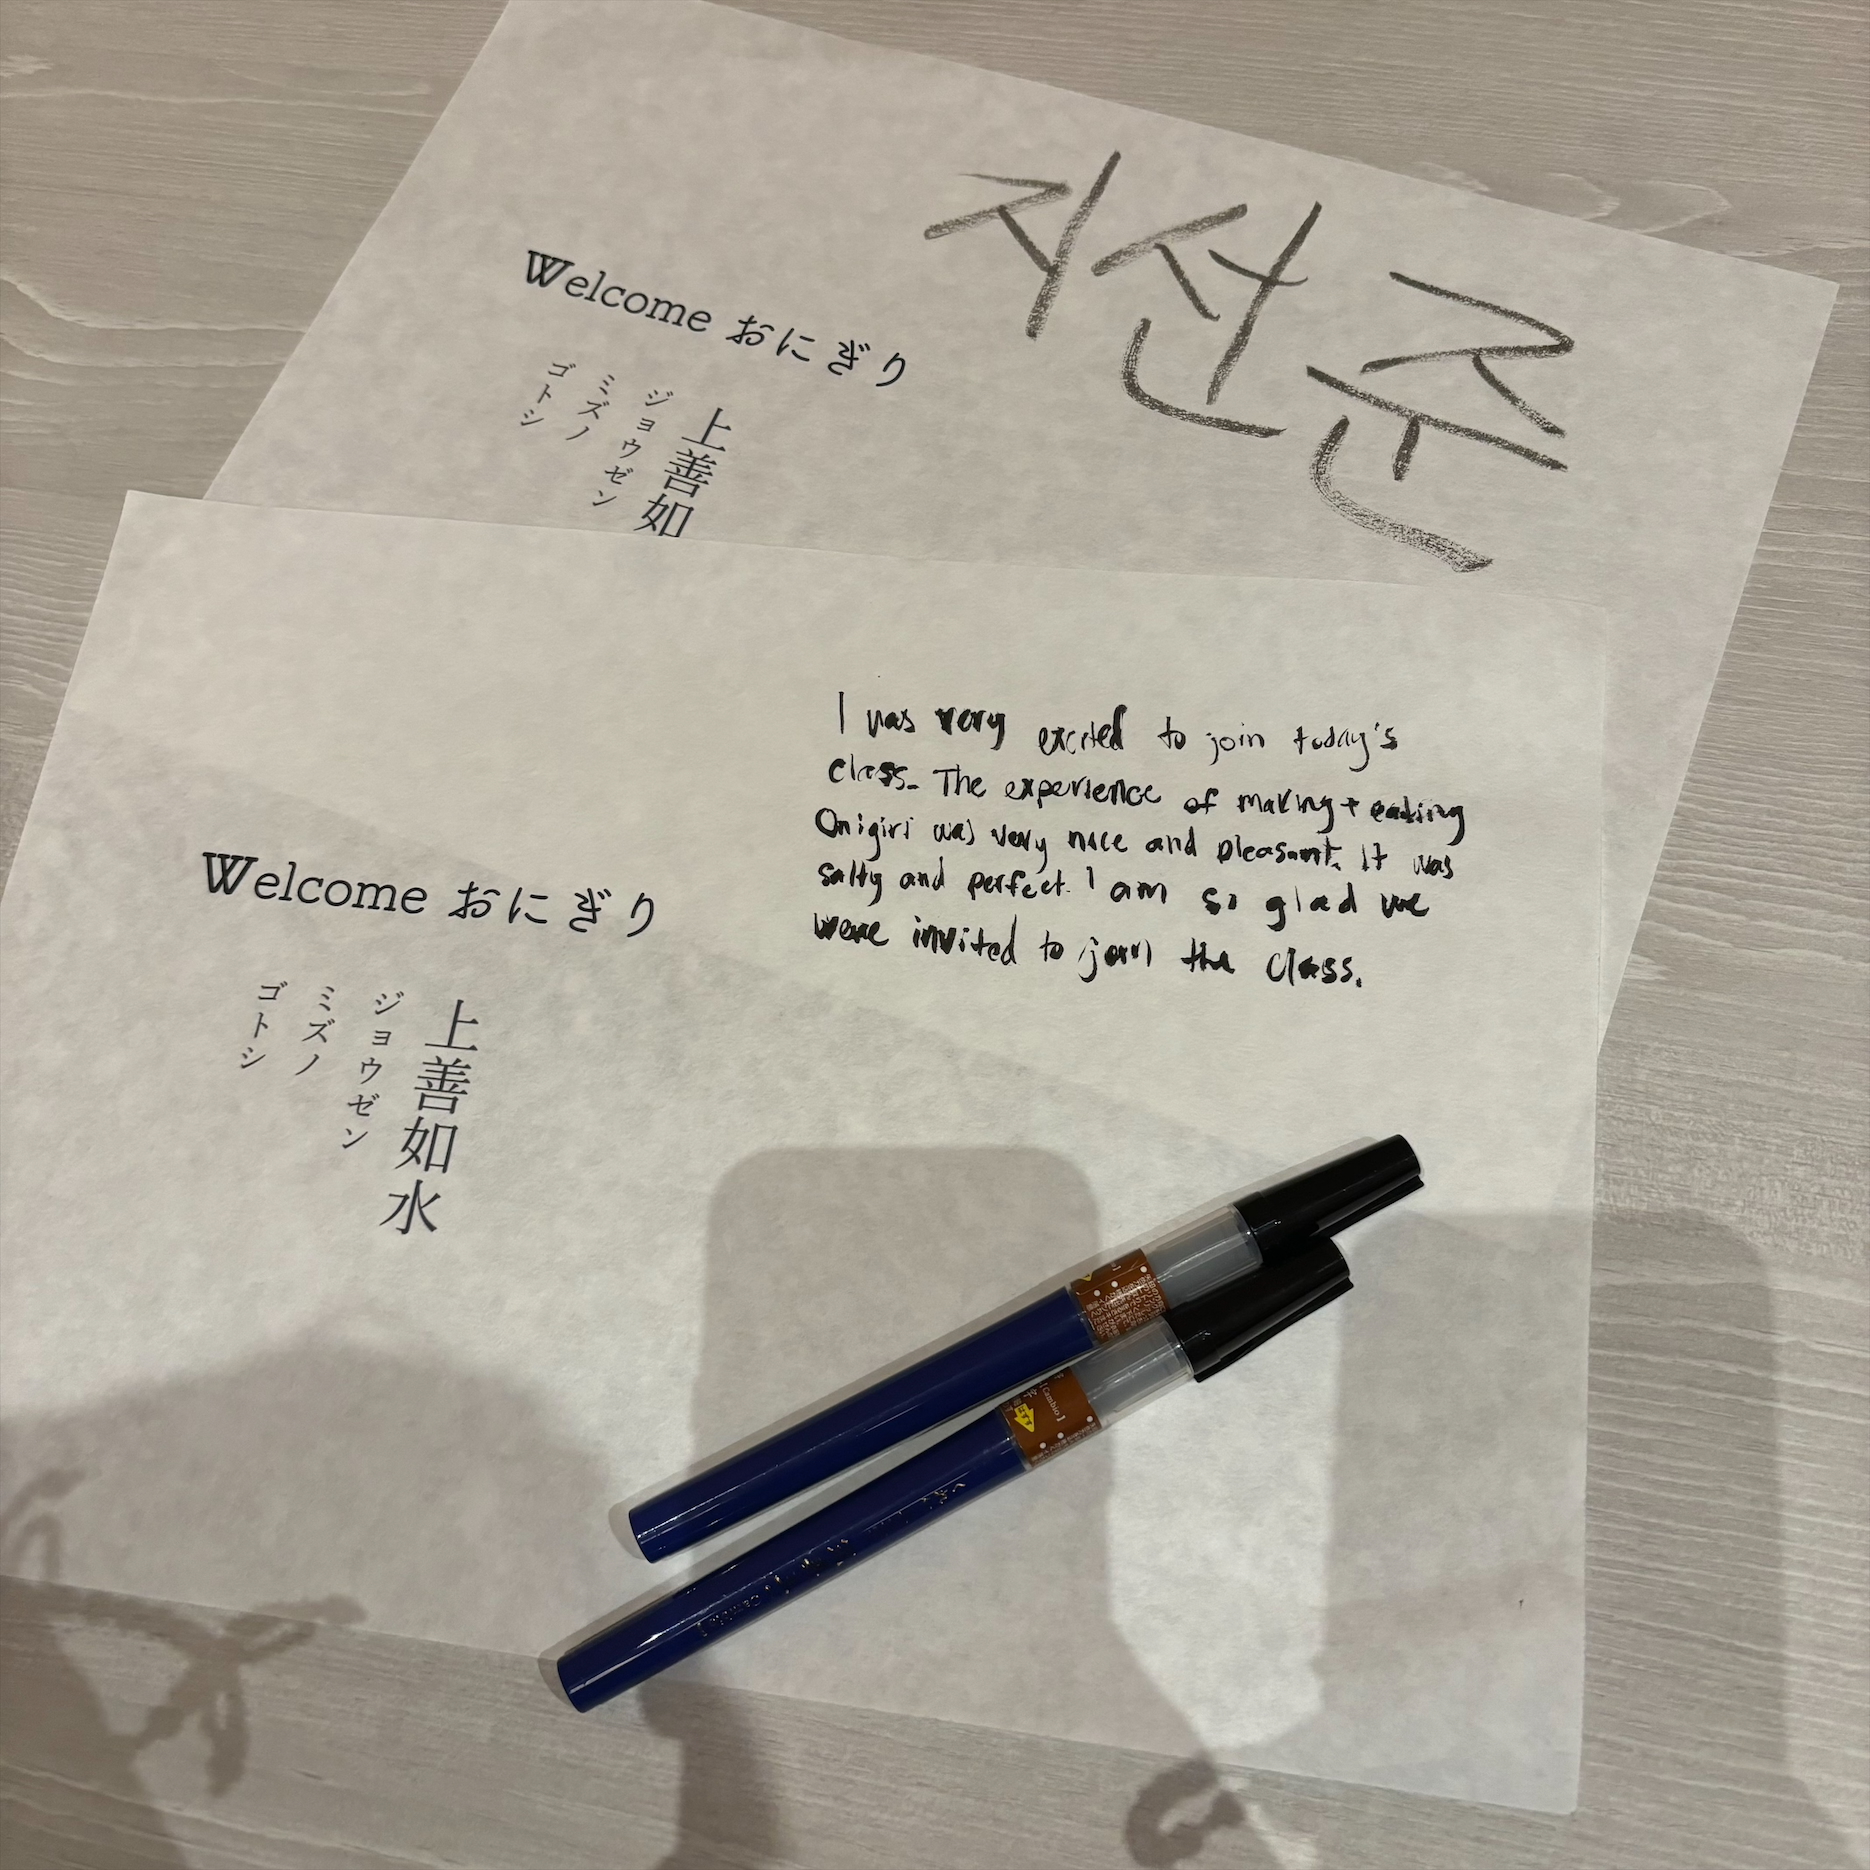 지선준
Welcome おにぎり
上善如
ジョウゼン
ミズノ
ゴトシ
I was very excited to join today's
class. The experience of making + eating
Onigiri was very nice and pleasant. It was
salty and perfect. I am so glad we
were invited to join the class.
Welcome おにぎり
上善如水
ジョウゼン
ミズノ
ゴトシ
[Cambio]